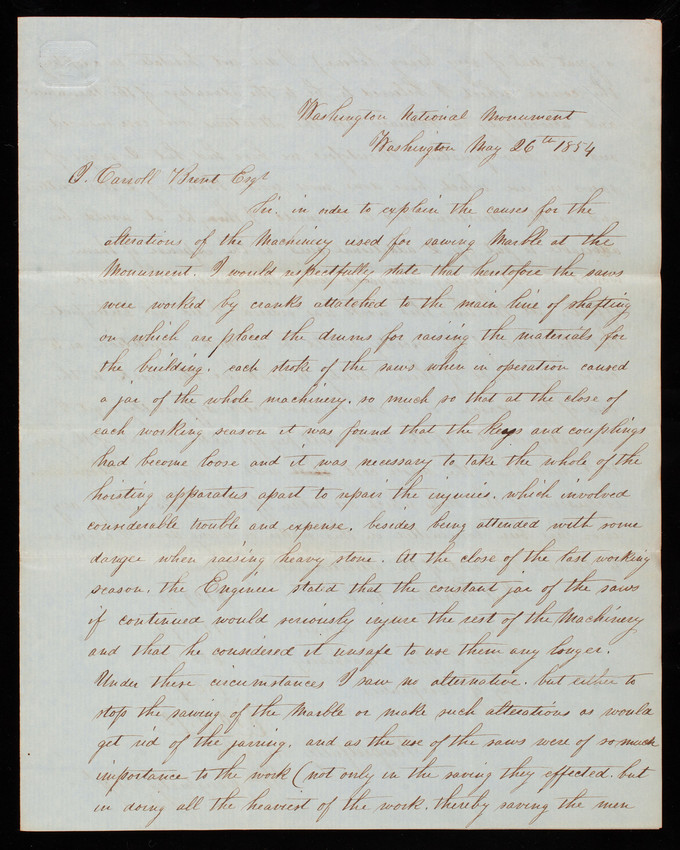 Washington National Monument
Washington May 26th 1854
J. Carroll Brent Esqr
Sir. in order to explain the causes for the
alterations of the Machinery used for sawing Marble at the
Monument. I would respectfully state that heretofore the saws
were worked by cranks attatched to the main line of shafting
on which are placed the drums for raising the materials for
the building. each stroke of the saws when in operation caused
a jar of the whole machinery. so much so that at the close of
each working season it was found that the keys and couplings
had become loose and it was necessary to take the whole of the
hoisting apparatus apart to repair the injuries. which involved
considerable trouble and expense. besides being attended with some
danger when raising heavy stone. At the close of the last working
season. the Engineer stated that the constant jar of the saws
if continued would seriously injure the rest of the Machinery
and that he considered it unsafe to use them any longer.
Under these circumstances I saw no alternative. but either to
stop the sawing of the Marble or make such alterations as would
get rid of the jarring. and as the use of the saws were of so much
importance to the work (not only in the saving they effected. but
in doing all the heaviest of the work. thereby saving the men